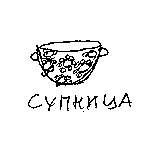 СУПНИЦА